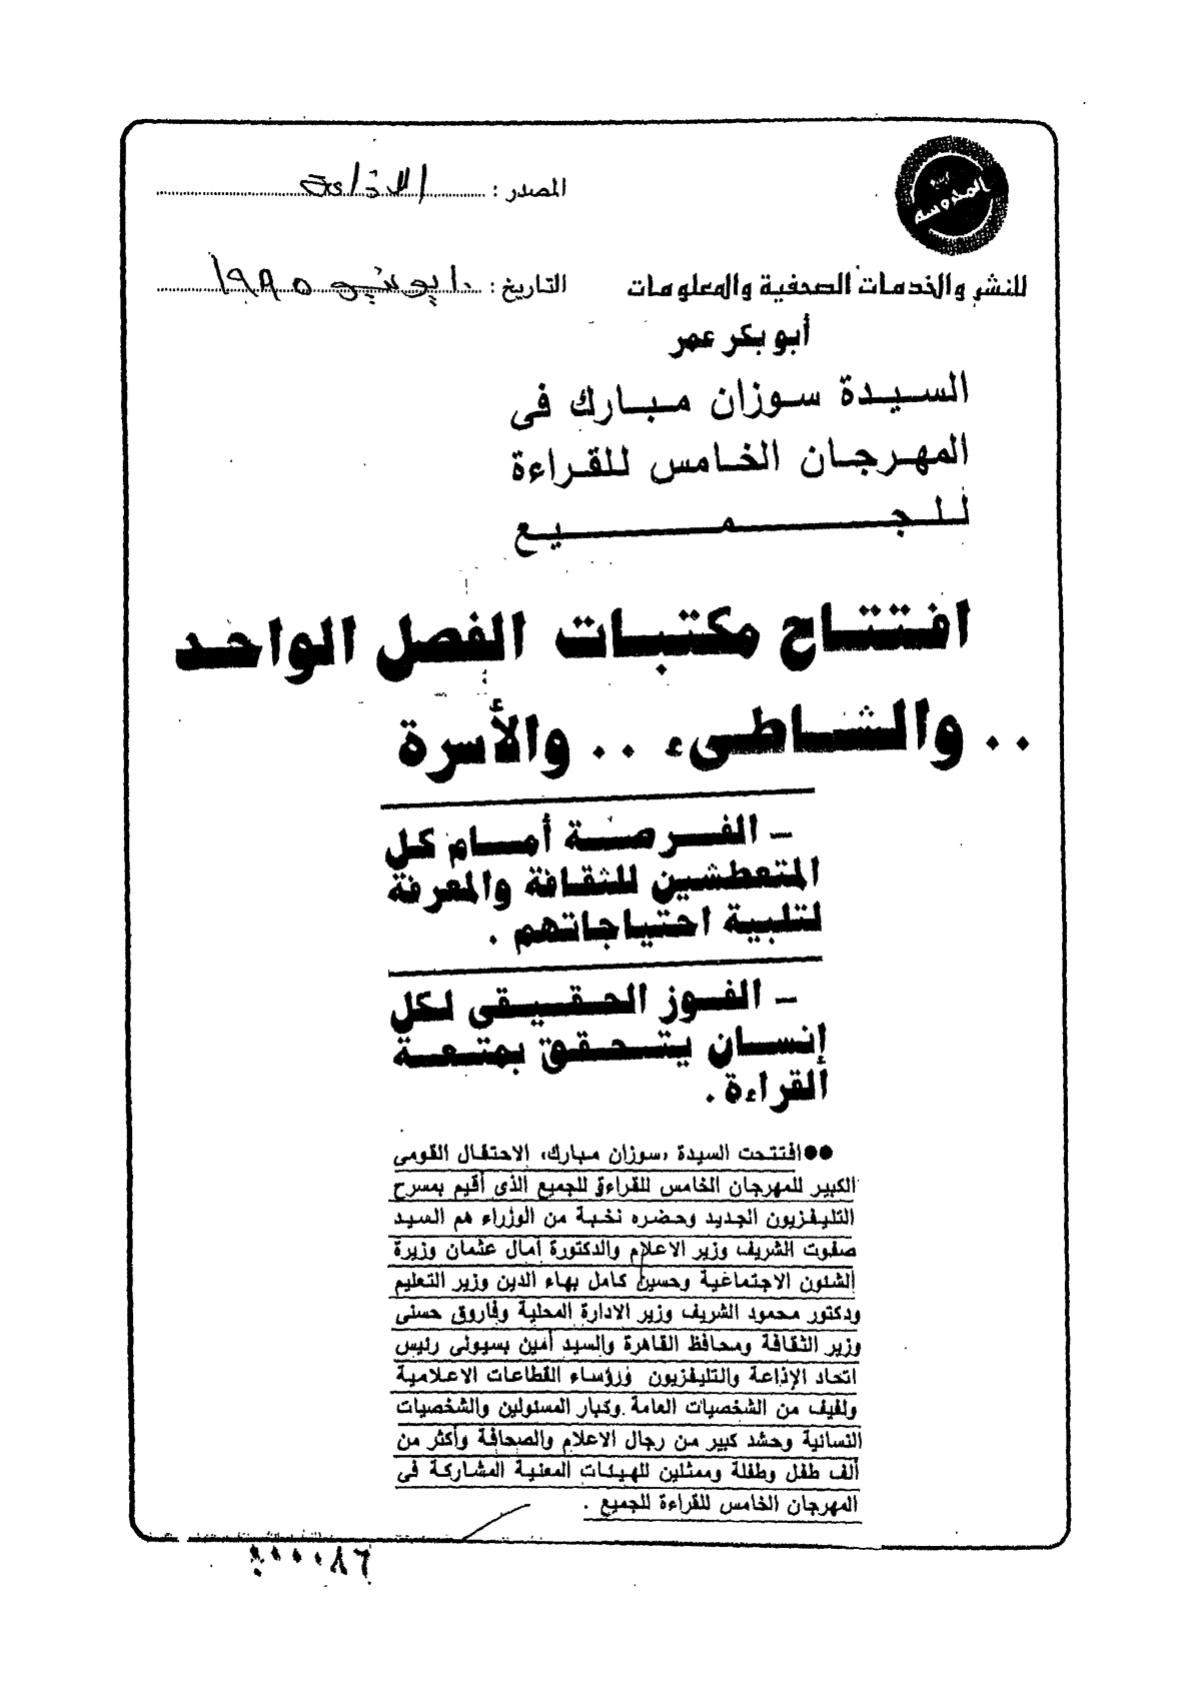 المصدر : الاذاعة
المدوسة
التاريخ : ١٠ يونيو ١٩٩٥
للنشر والخدمات الصحفية والمعلومات
أبو بكر عمر
السيدة سوزان مبارك فى
المهرجان الخامس للقراءة
للجميع
افتتاح مكتبات الفصل الواحد
.. والشاطىء .. والأسرة
– الفرصة أمام كل
المتعطشين للثقافة والمعرفة
لتلبية احتياجاتهم .
– الفوز الحقيقى لكل
إنسان يتحقق بمتعة
القراءة .
●●افتتحت السيدة «سوزان مبارك» الاحتفال القومى
الكبير للمهرجان الخامس للقراءة للجميع الذى أقيم بمسرح
التليفزيون الجديد وحضره نخبة من الوزراء هم السيد
صفوت الشريف وزير الاعلام والدكتورة آمال عثمان وزيرة
الشئون الاجتماعية وحسين كامل بهاء الدين وزير التعليم
ودكتور محمود الشريف وزير الادارة المحلية وفاروق حسنى
وزير الثقافة ومحافظ القاهرة والسيد أمين بسيونى رئيس
اتحاد الإذاعة والتليفزيون ورؤساء القطاعات الاعلامية
ولفيف من الشخصيات العامة وكبار المسئولين والشخصيات
النسائية وحشد كبير من رجال الاعلام والصحافة وأكثر من
ألف طفل وطفلة وممثلين للهيئات المعنية المشاركة فى
المهرجان الخامس للقراءة للجميع .